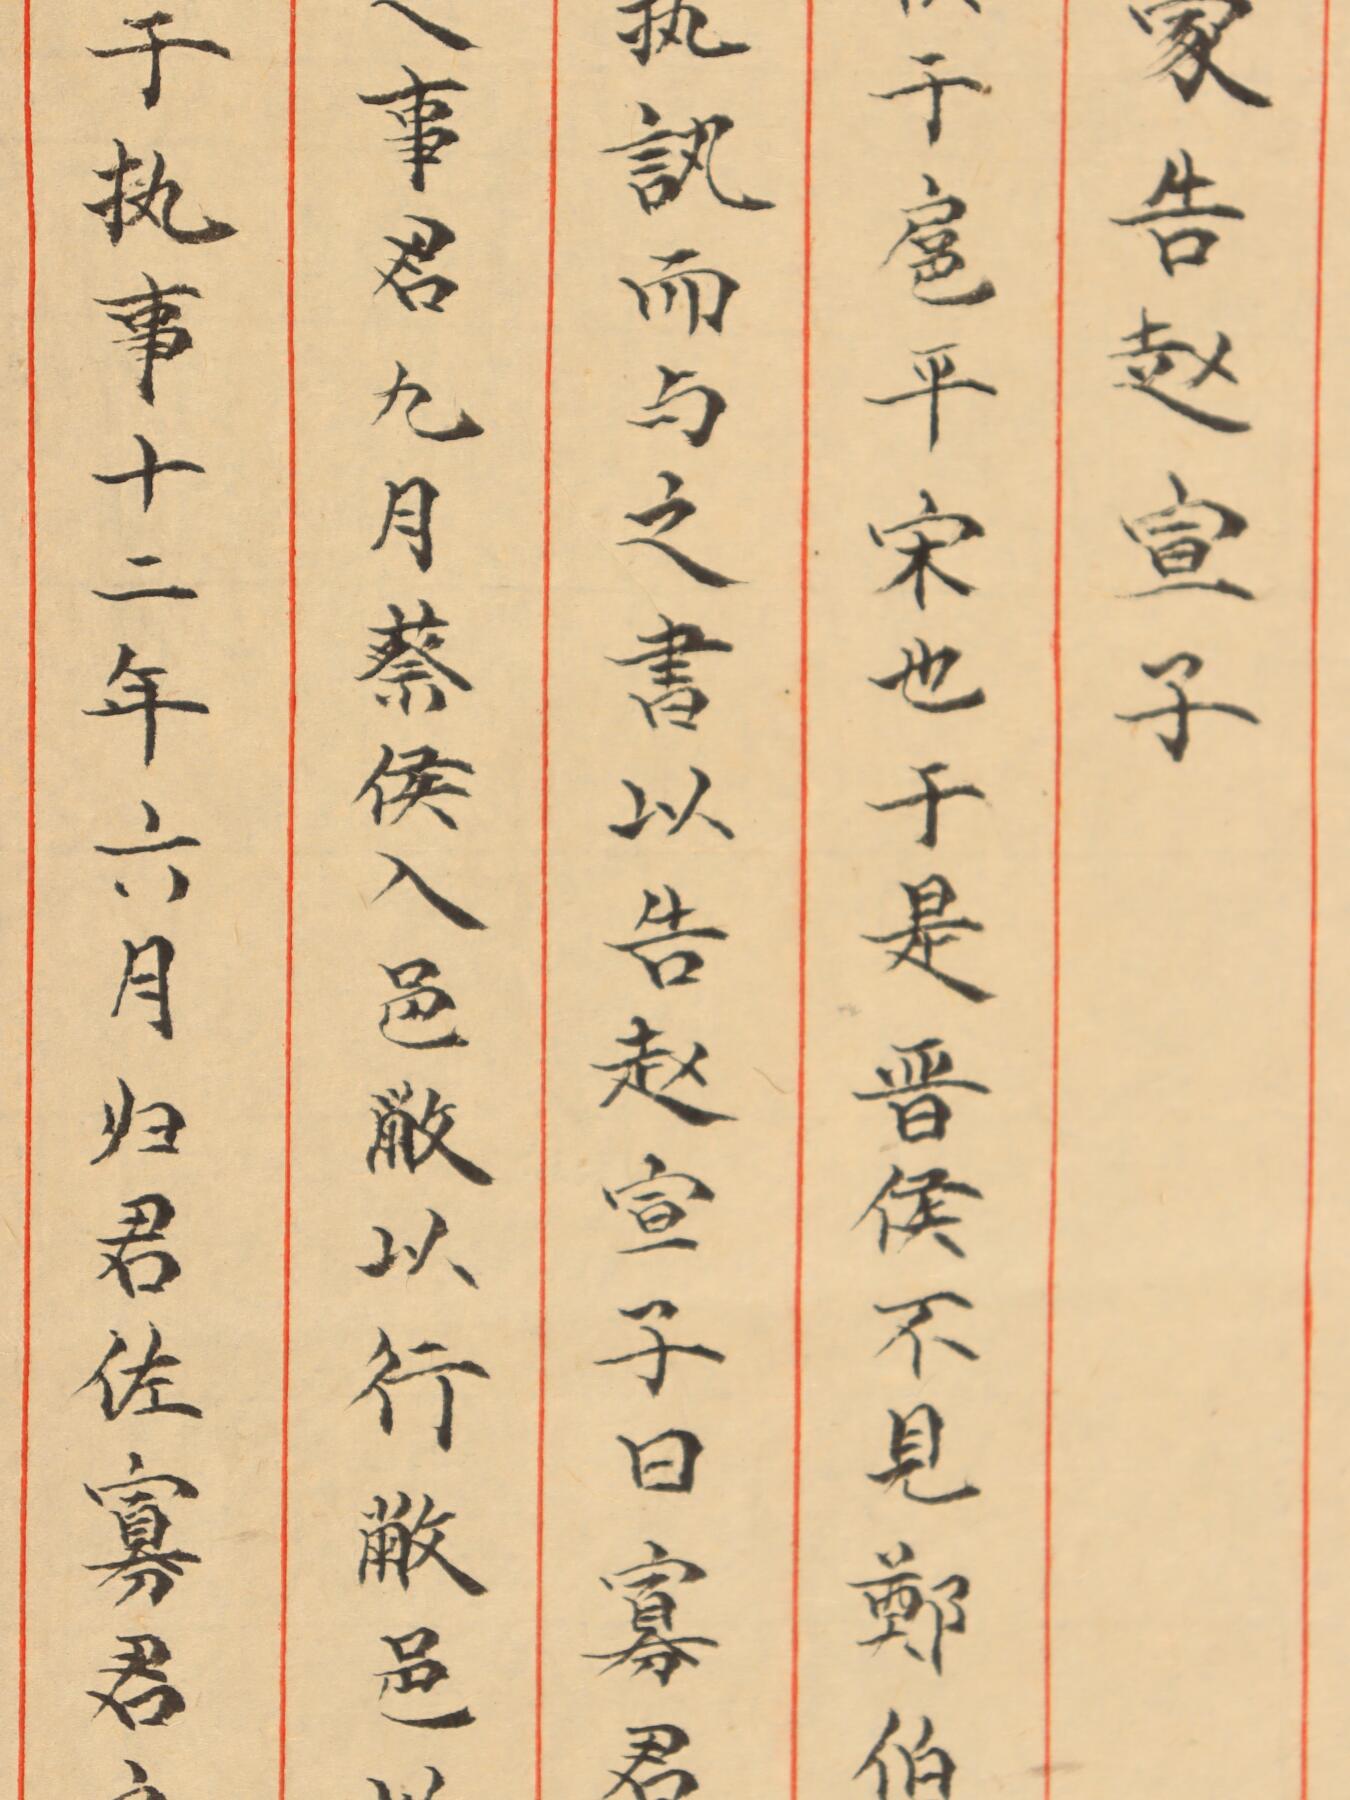 家告赵宣子
于扈平宋也于是晋侯不見鄭伯
执訊而与之書以告赵宣子曰寡君
事君九月蔡侯入邑敝以行敝邑以
于执事十二年六月归君佐寡君